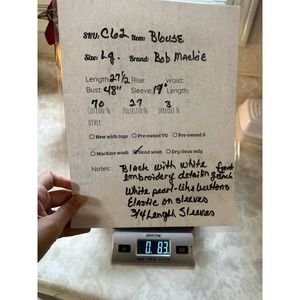 SKU: C62 Item: Blouse
Size: Lg. Brand: Bob Mackie
Length: 27 1/2 Rise: Waist:
Bust: 48" Sleeve: 19" Length:
70 27 3
COTTON % POLYESTER % SPANDEX %
OTHER
☐ New with tags ☐ Pre-owned VG ☐ Pre-owned G
☐ Machine wash ☑ Hand wash ☐ Dry clean only
Notes: Black with white
embroidery detail on front
White pearl-like buttons
Elastic on sleeves
3/4 Length Sleeves
0. 8.3